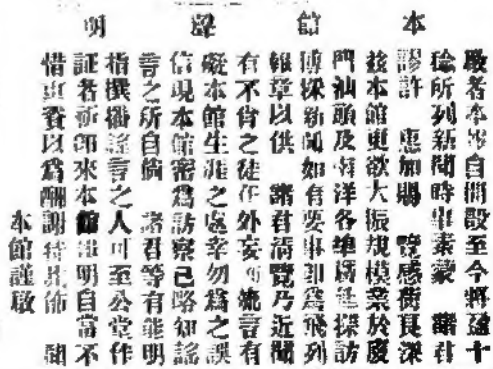 本館聲明
啟者本部自開設至今將十
稔所列新聞時事素蒙 諸君
謬許 惠加賜 覽感銜良深
茲本館更欲大振規模業於廈
門汕頭及南洋各埠廣延採訪
博採新聞如有要事即爲飛列
報章以供 諸君清覽乃近聞
有不肖之徒在外妄流言有
礙本館生涯之處幸勿爲之誤
信現本館密爲訪察已略知謠
言之所自倘 諸君等有能明
指撰謠言之人可至公堂作
証者祈即來本館明自當不
惜重費以爲酬謝特此佈 聞
本館謹啟